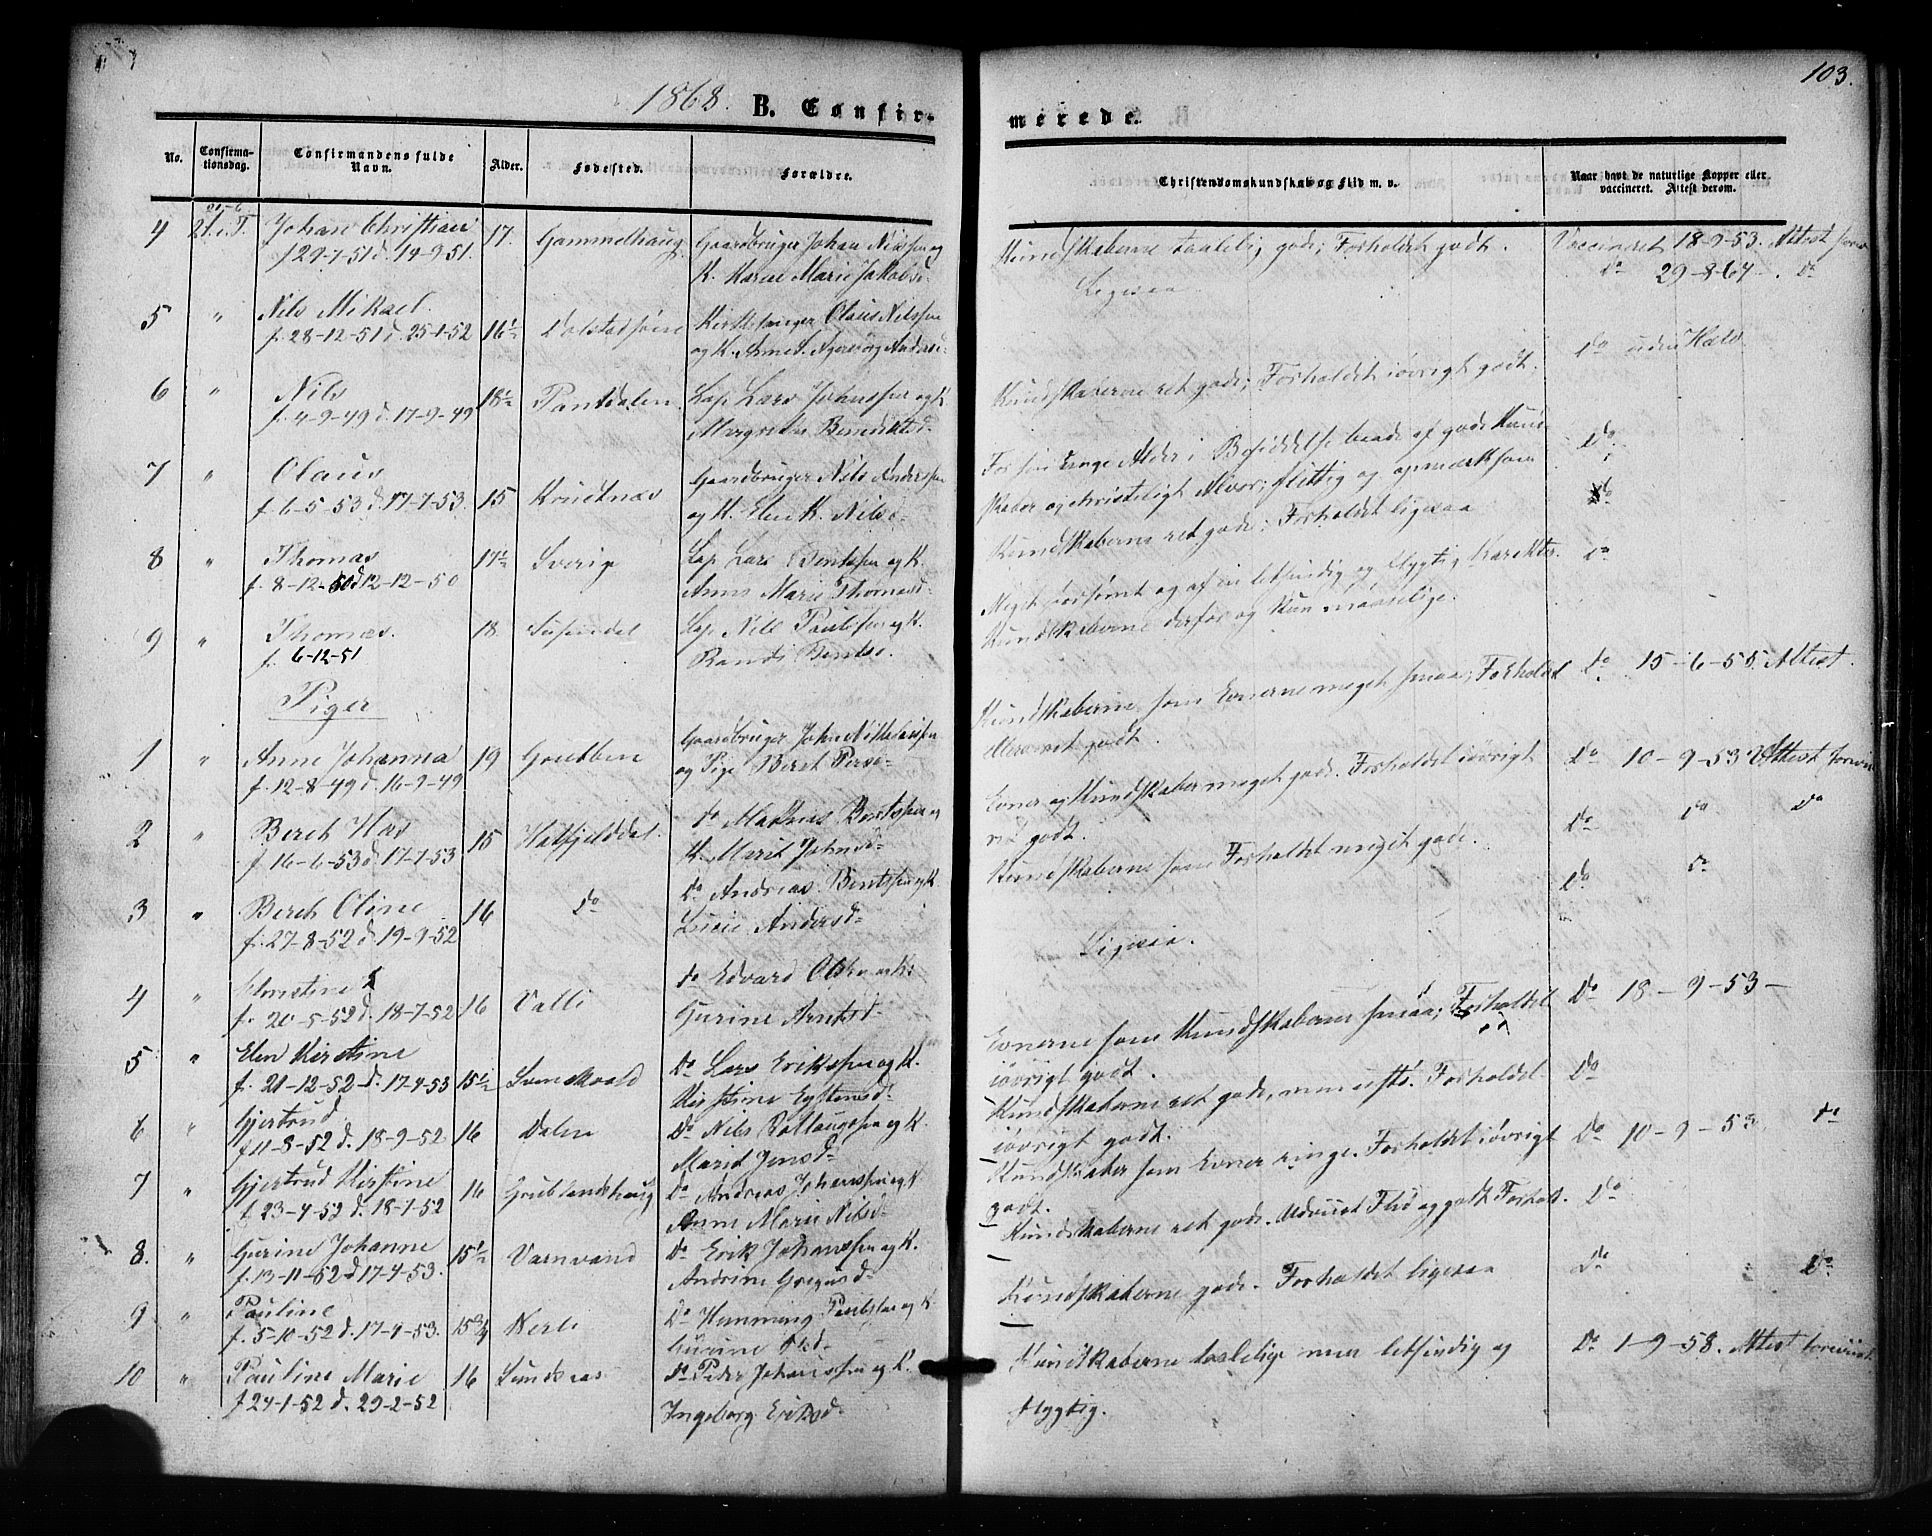 103.
1868. B. Confir-
merede.
No. Confirma- tionsdag. Confirmandens fulde Navn. Alder. Fødested. Forældre. Christendomskundskab og Flid m. v. Naar havt de naturlige Kopper eller vaccineret. Attest derom.
4 21. e. T. Johan Christian 17. Gammelhaug Gaardbruger Johan Nilssen og
f 29-7-51 d. 14-9-51. K. Karen Marie Jakobsd.
Kundskaberne taalelig gode; Forholdet godt. Vaccineret 18-9-53. Attest
Ligesaa Do 29-8-64 Do
5 " Nils Mikael. 16½ Kirkesanger Olaus Nilssen
f. 28-12-51 d. 25-1-52 og K.
Do uden Held
6 " Nils 18½ Pantdalen Lap Lars Johanssen og K
f. 4-9-49 d. 17-9-49 Margrethe
Kundskaberne ret gode; Forholdet iøvrigt godt. Do
7 " Olaus 15 Krutnæs Gaardbruger Nils Anderssen
f. 6-5-53 d. 17-7-53. og K. Elen K. Nilsd.
For sin unge Alder i Besiddelse baade af gode Kund-
skaber og christeligt Alvor; flittig og opmærksom Do
8 " Thomas 17½ Sverig Lap Lars Bentssen og K.
f. 8-12-50 d 12-12-50 Anne Marie Thomasd.
Kundskaberne ret gode; Forholdet ligesaa Do
9 " Thomas. 18 Susendal Lap Nils Paulssen og K.
f. 6-12-51 Randi Bentsd.
Meget forsømt og af en letsindig og flygtig Karakter.
Kundskaberne derfor og kun maadelige.
Piger
1 " Anne Johanna 19 Gaardbruger
f. 12-8-49 d 16-9-49 og Pige Beret Persd.
Kundskaberne som Evnerne meget smaa; Forholdet Do 15-6-55. Attest.
ret godt.
2 " Beret 15 Hatfjelddal Do Mathias
f 16-6-53 d 17-7-53 K. Marit Johnsd.
Evner og Kundskaber meget gode. Forholdet iøvrigt Do 10-9-53 Attest
ret godt.
3 " Beret Oline 16 Do Do Andreas Bentssen og K
f. 27-8-52 d. 19-9-52 Andersd.
Kundskaberne som Forholdet meget gode. Do Do Do
4 " Christine 16 Valli Do Edvard Olsen og K.
f. 20-5-52 d. 18-7-52 Gurine Arntsd.
Ligesaa. Do Do
5 " Elen Kirstine 15½ Svenskvold Do Lars Erikssen og K.
f. 21-12-52 d. 17-4-53 Kirstine
Evnerne som Kundskaberne smaa; Forholdet Do 18-9-53-
iøvrigt godt.
6 " Gjertrud 16 Dalen Do Nils og K.
f 11-8-52 d. 18-9-52 Marit Jensd.
Kundskaberne ret gode, Forholdet Do
iøvrigt godt.
7 " Gjertrud Kirstine 16 Grublandshaug Do Andreas Johanssen og K
f 23-4-52 d. 18-7-52 Anne Marie Nilsd.
Kundskaber som Evner ringe. Forholdet iøvrigt Do 10-9-53. Do
godt.
8. " Gurine Johanne 15½ Varnvand Do Erik Johanssen og K.
f. 13-11-52 d 17-4-53. Andrine
Kundskaberne ret gode. Udviist Flid og godt Forhold. Do
9 " Pauline 15¾ Nerli Do Hemming Paulssen og K
f. 5-10-52 d. 17-4-53. Gurine
Kundskaberne gode. Forholdet ligesaa Do Do
10 " Pauline Marie 16 Do Peder Johanssen og K.
f 24-1-52 d. 29-2-52 Ingeborg Eriksd.
Kundskaberne taalelige men letsindig og Do 1-9-58. Attest foreviist
flygtig.